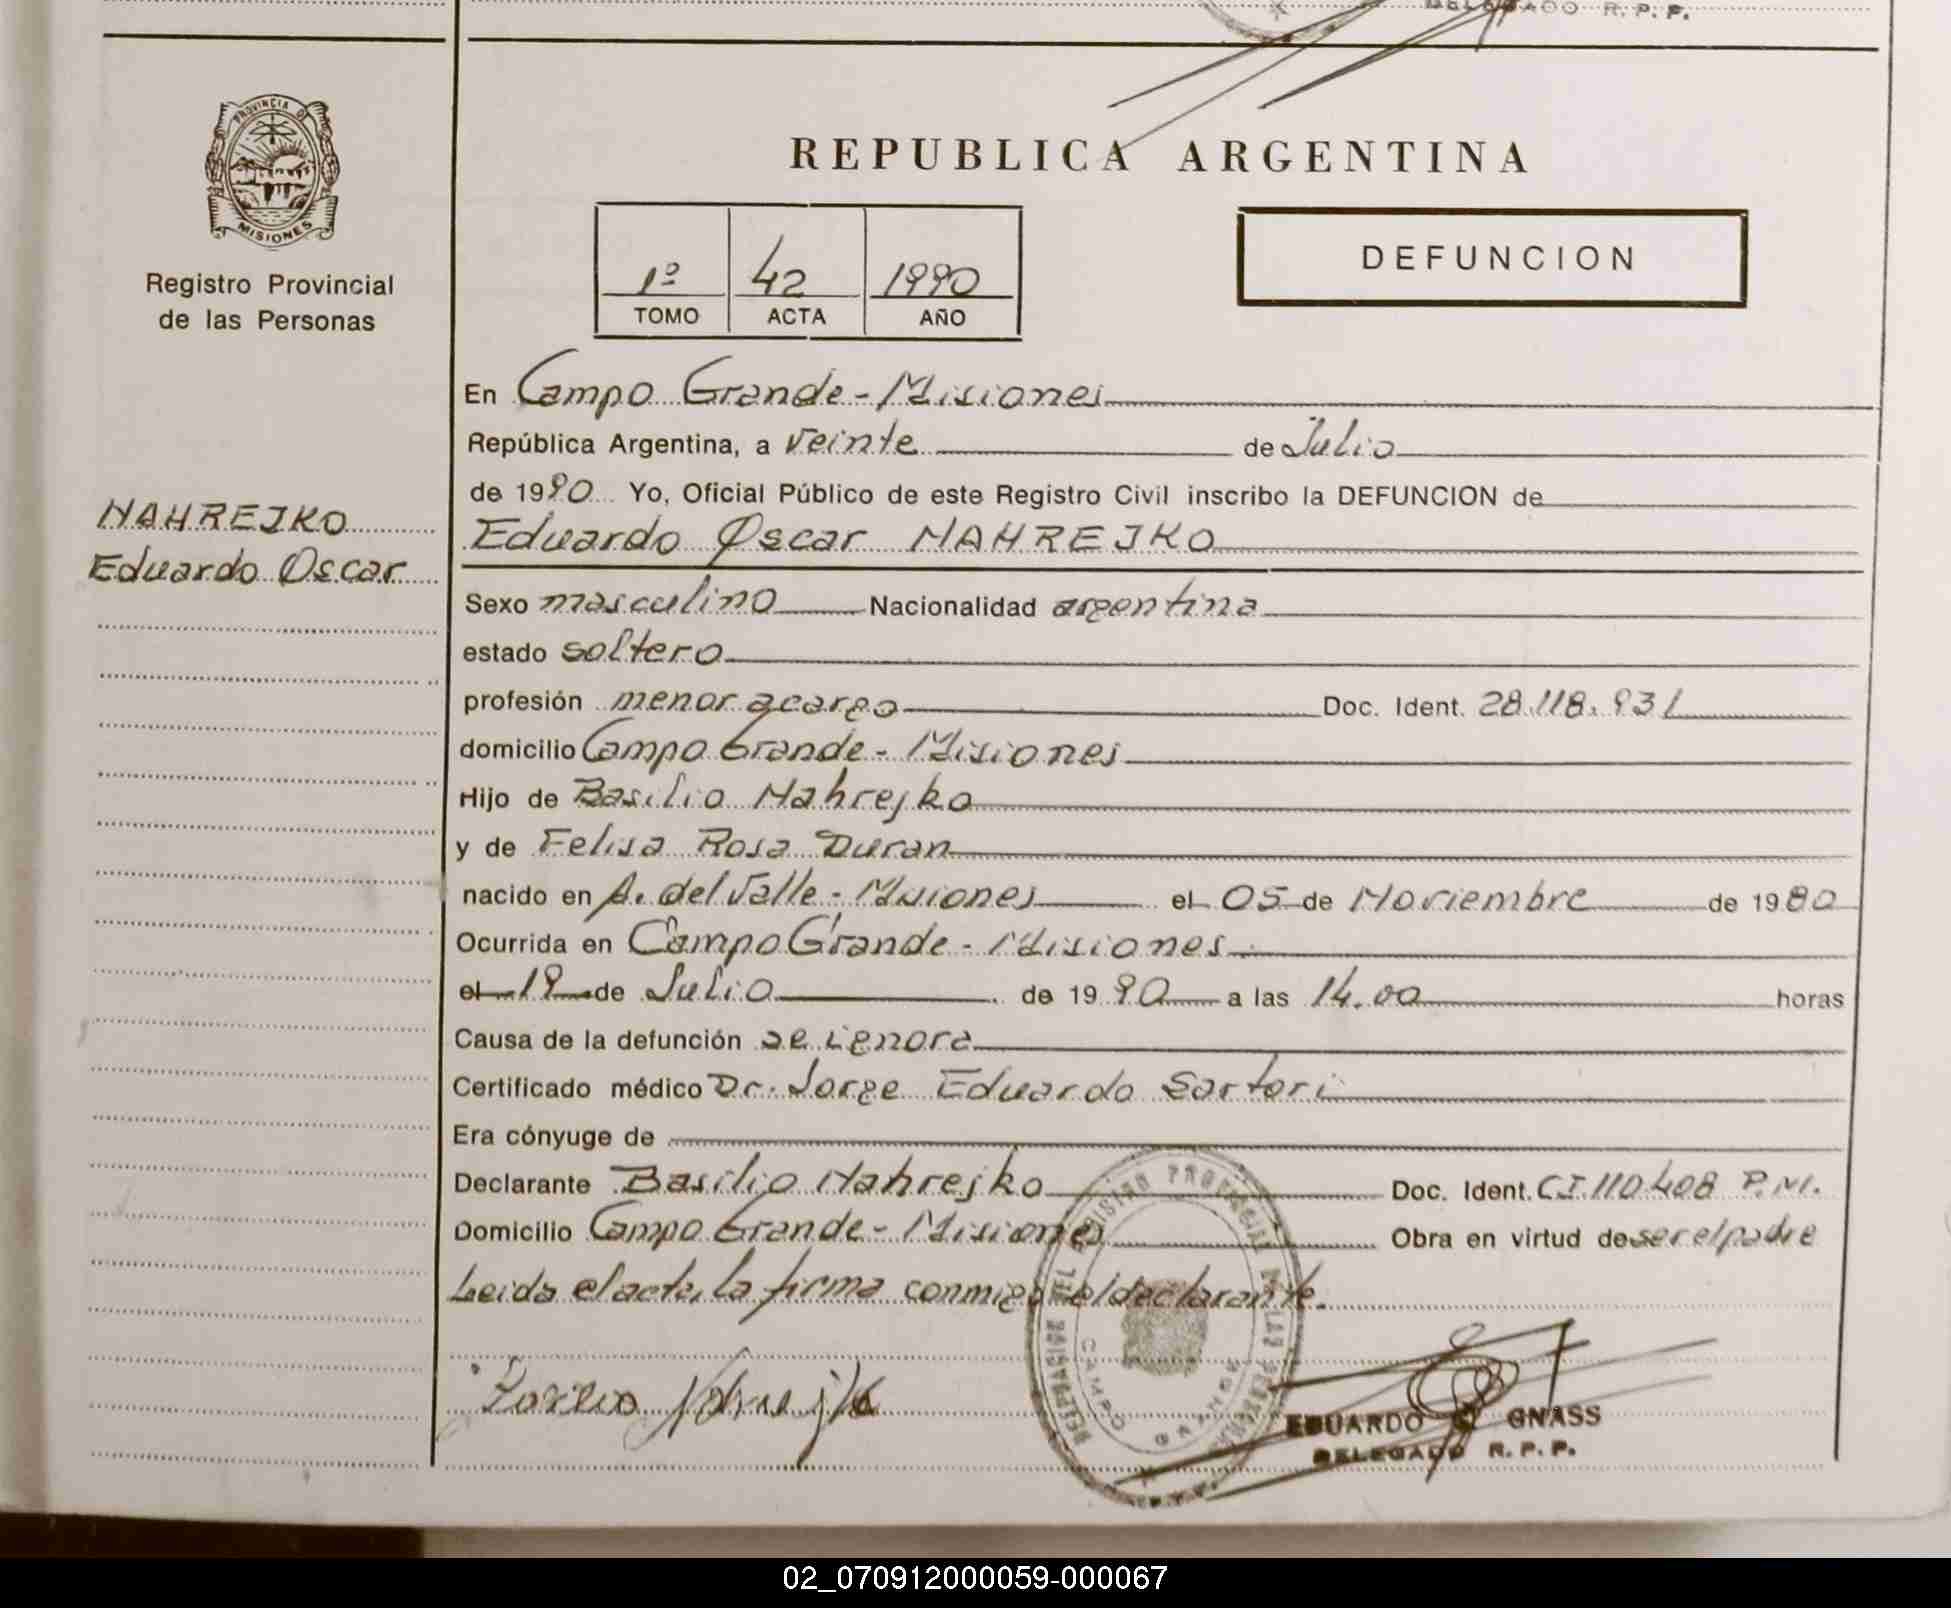 DELEGADO R. P. P.
PROVINCIA DE
MISIONES
Registro Provincial
de las Personas
NAHREJKO
Eduardo Oscar
REPUBLICA ARGENTINA
1º 42 1990
TOMO ACTA AÑO
DEFUNCION
En Campo Grande - Misiones
República Argentina, a Veinte de Julio
de 1990 Yo, Oficial Público de este Registro Civil inscribo la DEFUNCION de
Eduardo Oscar NAHREJKO
Sexo masculino Nacionalidad argentina
estado soltero
profesión menor a cargo Doc. Ident. 28.118.931
domicilio Campo Grande - Misiones
Hijo de Basilio Nahrejko
y de Felisa Rosa Duran
nacido en A. del Valle - Misiones el 05 de Noviembre de 1980
Ocurrida en Campo Grande - Misiones
el 19 de Julio de 1990 a las 14.00 horas
Causa de la defunción se ignora
Certificado médico Dr. Jorge Eduardo Sartori
Era cónyuge de
Declarante Basilio Nahrejko Doc. Ident. C.I. 110.408 P.M.
Domicilio Campo Grande - Misiones Obra en virtud de ser el padre
Leida el acta, la firma conmigo el declarante.
CAMPO GRANDE
EDUARDO GNASS
DELEGADO R. P. P.
02_070912000059-000067